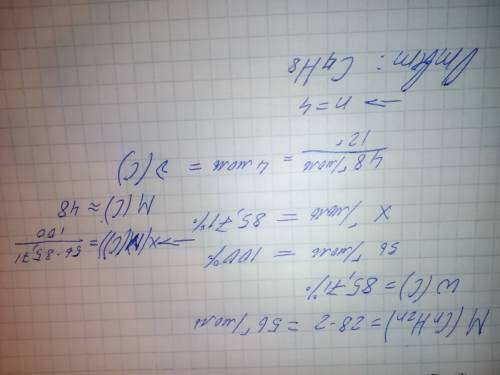 M(CnH2n) = 28·2 = 56 г/моль
ω(C) = 85,71%
56 г/моль = 100%
x г/моль = 85,71%
→ x(M(C)) = 56·85,71 / 100
M(C) ≈ 48
48 г/моль / 12г = 4 моль = ν(C)
→ n = 4
Ответ: C4H8